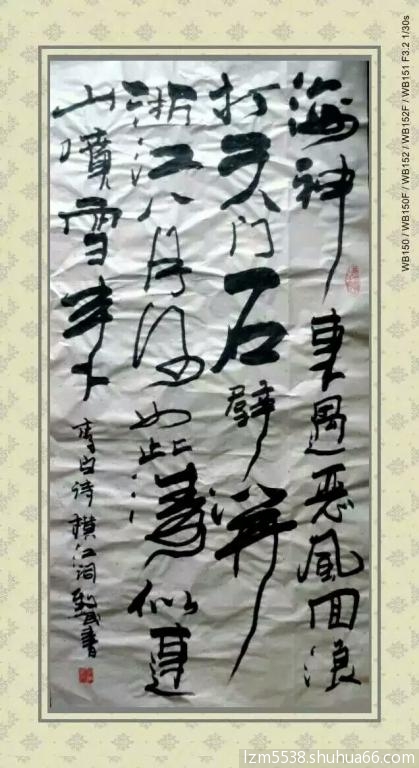 海神來過惡風回浪
打天门石壁開
浙江八月何如此濤似連
山噴雪来
李白诗横江词書
WB150 / WB150F / WB152 / WB152F / WB151 F3.2 1/30s
lzm5538.shuhua66.com